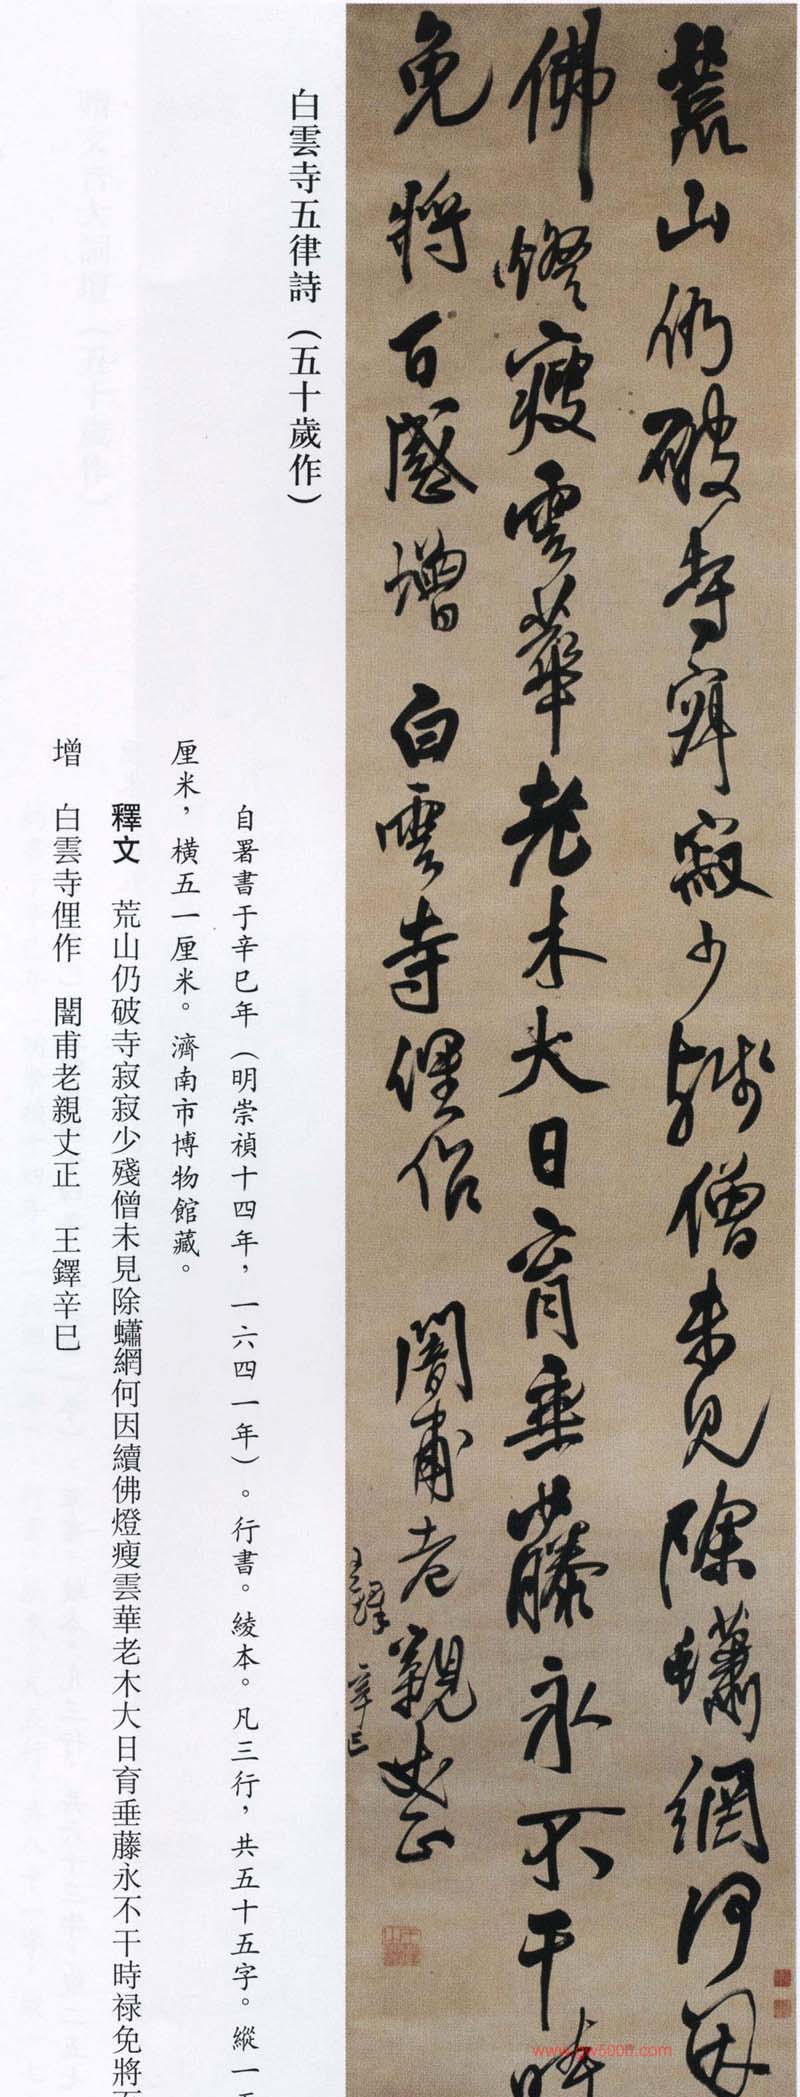 荒山仍破寺寂寂少殘僧未見除蠨網何因
佛燈瘦雲華老木大日育垂藤永不干時
免將百感增 白雲寺俚作 闇甫老親丈正
王鐸 辛巳
白雲寺五律詩（五十歲作）
自署書于辛巳年（明崇禎十四年，一六四一年）。行書。綾本。凡三行，共五十五字。縱一
厘米，橫五一厘米。濟南市博物館藏。
釋文 荒山仍破寺寂寂少殘僧未見除蠨網何因續佛燈瘦雲華老木大日育垂藤永不干時禄免將
增 白雲寺俚作 闇甫老親丈正 王鐸辛巳